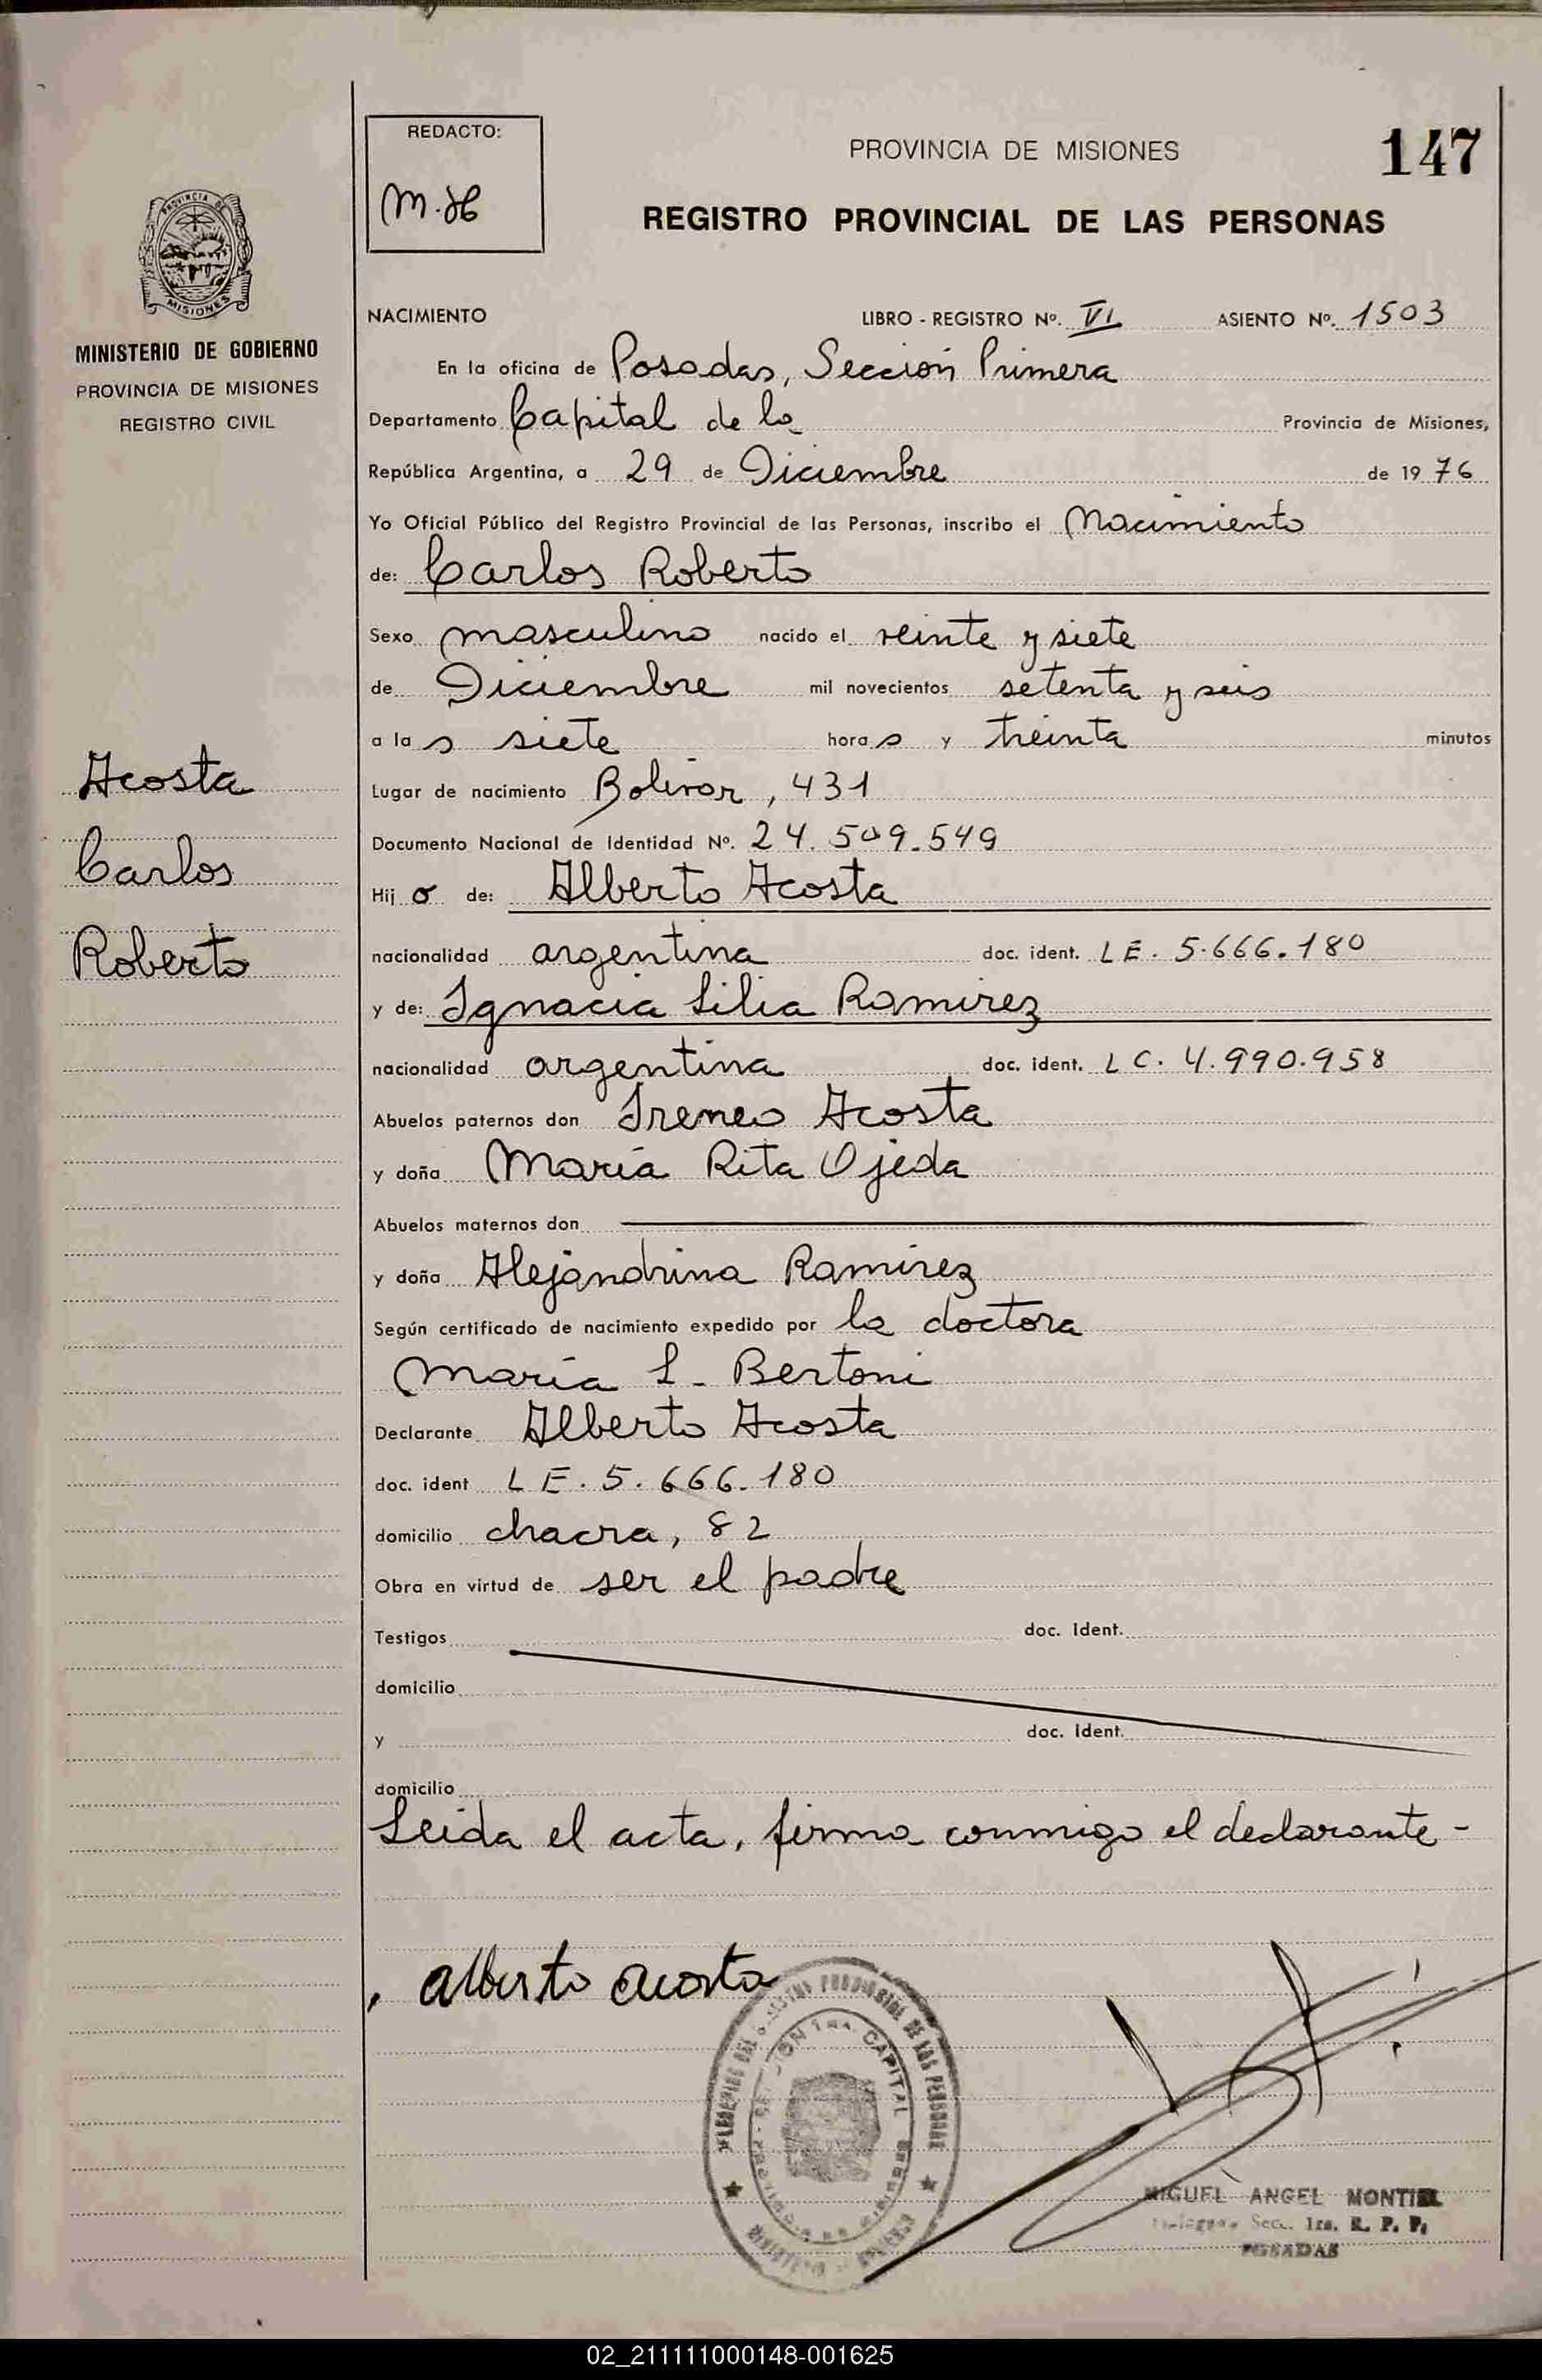 REDACTO:
M.H
PROVINCIA DE MISIONES
147
REGISTRO PROVINCIAL DE LAS PERSONAS
PROVINCIA DE
MISIONES
MINISTERIO DE GOBIERNO
PROVINCIA DE MISIONES
REGISTRO CIVIL
NACIMIENTO LIBRO - REGISTRO Nº. VI ASIENTO Nº. 1503
En la oficina de Posadas, Sección Primera
Departamento Capital de la Provincia de Misiones,
República Argentina, a 29 de Diciembre de 1976
Yo Oficial Público del Registro Provincial de las Personas, inscribo el Nacimiento
de: Carlos Roberto
Sexo masculino nacido el veinte y siete
de Diciembre mil novecientos setenta y seis
a las siete horas y treinta minutos
Acosta
Carlos
Roberto
Lugar de nacimiento Bolivar, 431
Documento Nacional de Identidad Nº. 24.509.549
Hijo de: Alberto Acosta
nacionalidad argentina doc. ident. LE. 5.666.180
y de: Ignacia Lilia Ramirez
nacionalidad argentina doc. ident. LC. 4.990.958
Abuelos paternos don Ireneo Acosta
y doña María Rita Ojeda
Abuelos maternos don
y doña Alejandrina Ramírez
Según certificado de nacimiento expedido por la doctora
María L. Bertoni
Declarante Alberto Acosta
doc. ident LE. 5.666.180
domicilio chacra, 82
Obra en virtud de ser el padre
Testigos doc. ident.
domicilio
y doc. ident.
domicilio
Leida el acta, firma conmigo el declarante -
Alberto Acosta
CAPITAL
DE LAS PERSONAS
MIGUEL ANGEL MONTIEL
Sec. 1ra. R. P. P.
POSADAS
02_211111000148-001625